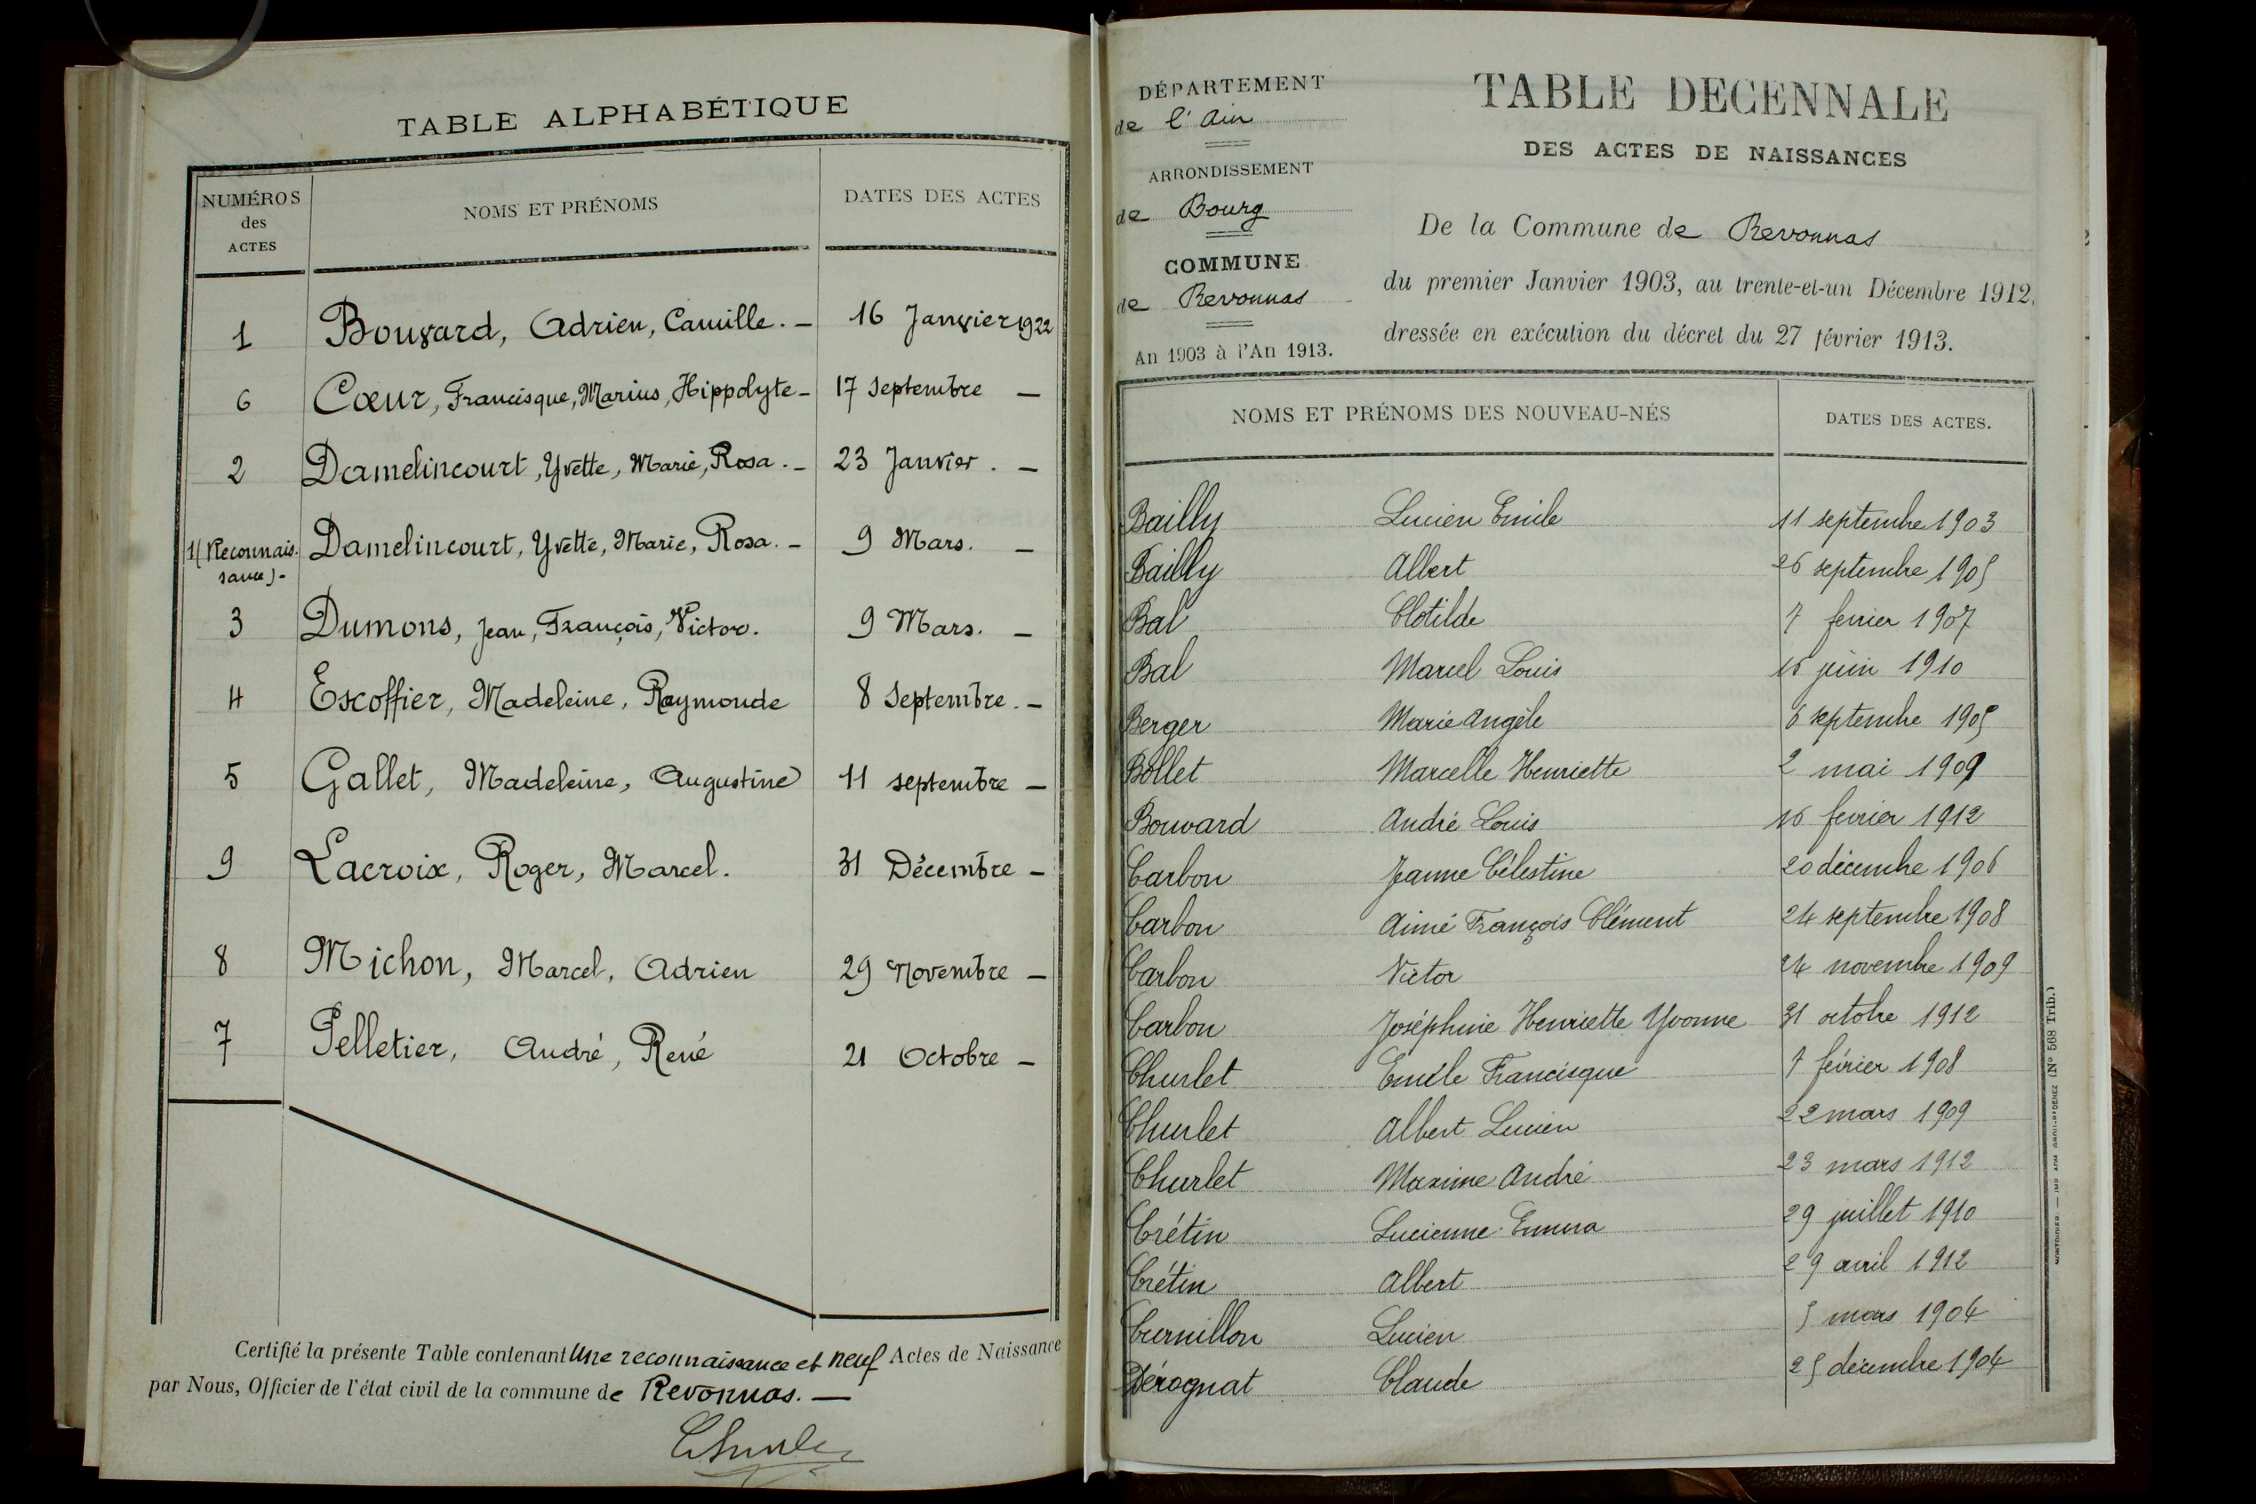 TABLE ALPHABÉTIQUE
NUMÉROS des ACTES NOMS ET PRÉNOMS DATES DES ACTES
1 Bouvard, Adrien, Camille. — 16 Janvier 1922
6 Cœur, Francisque, Marius, Hippolyte — 17 Septembre —
2 Damelincourt, Yvette, Marie, Rosa. — 23 Janvier. —
1 (Reconnais- Damelincourt, Yvette, Marie, Rosa. — 9 Mars. —
sance) -
3 Dumons, Jean, François, Victor. 9 Mars. —
4 Escoffier, Madeleine, Raymonde 8 Septembre. —
5 Gallet, Madeleine, Augustine 11 septembre —
9 Lacroix, Roger, Marcel. 31 Décembre —
8 Michon, Marcel, Adrien 29 Novembre —
7 Pelletier, André, René 21 Octobre —
Certifié la présente Table contenant une reconnaissance et neuf Actes de Naissance
par Nous, Officier de l'état civil de la commune de Revonnas. —
DÉPARTEMENT
de l'Ain
ARRONDISSEMENT
de Bourg
COMMUNE
de Revonnas
An 1903 à l'An 1913.
TABLE DECENNALE
DES ACTES DE NAISSANCES
De la Commune de Revonnas
du premier Janvier 1903, au trente-et-un Décembre 1912,
dressée en exécution du décret du 27 février 1913.
NOMS ET PRÉNOMS DES NOUVEAU-NÉS DATES DES ACTES.
Bailly Lucien Emile 11 septembre 1903
Bailly Albert 26 septembre 1905
Bal Clotilde 7 fevrier 1907
Bal Marcel Louis 15 juin 1910
Berger Marie Angèle 6 septembre 1905
Bollet Marcelle Henriette 2 mai 1909
Bouvard André Louis 16 fevrier 1912
Carbon Jeanne Célestine 20 décembre 1906
Carbon Aimé François Clément 24 septembre 1908
Carbon Victor 24 novembre 1909
Carbon Joséphine Henriette Yvonne 31 octobre 1912
Churlet Emile Francisque 7 février 1908
Churlet Albert Lucien 22 mars 1909
Churlet Maxime André 23 mars 1912
Crétin Lucienne Emma 29 juillet 1910
Crétin Albert 29 avril 1912
Curnillon Lucien 5 mars 1904
Dérognat Claude 25 décembre 1904
(Nº 568 Trib.)